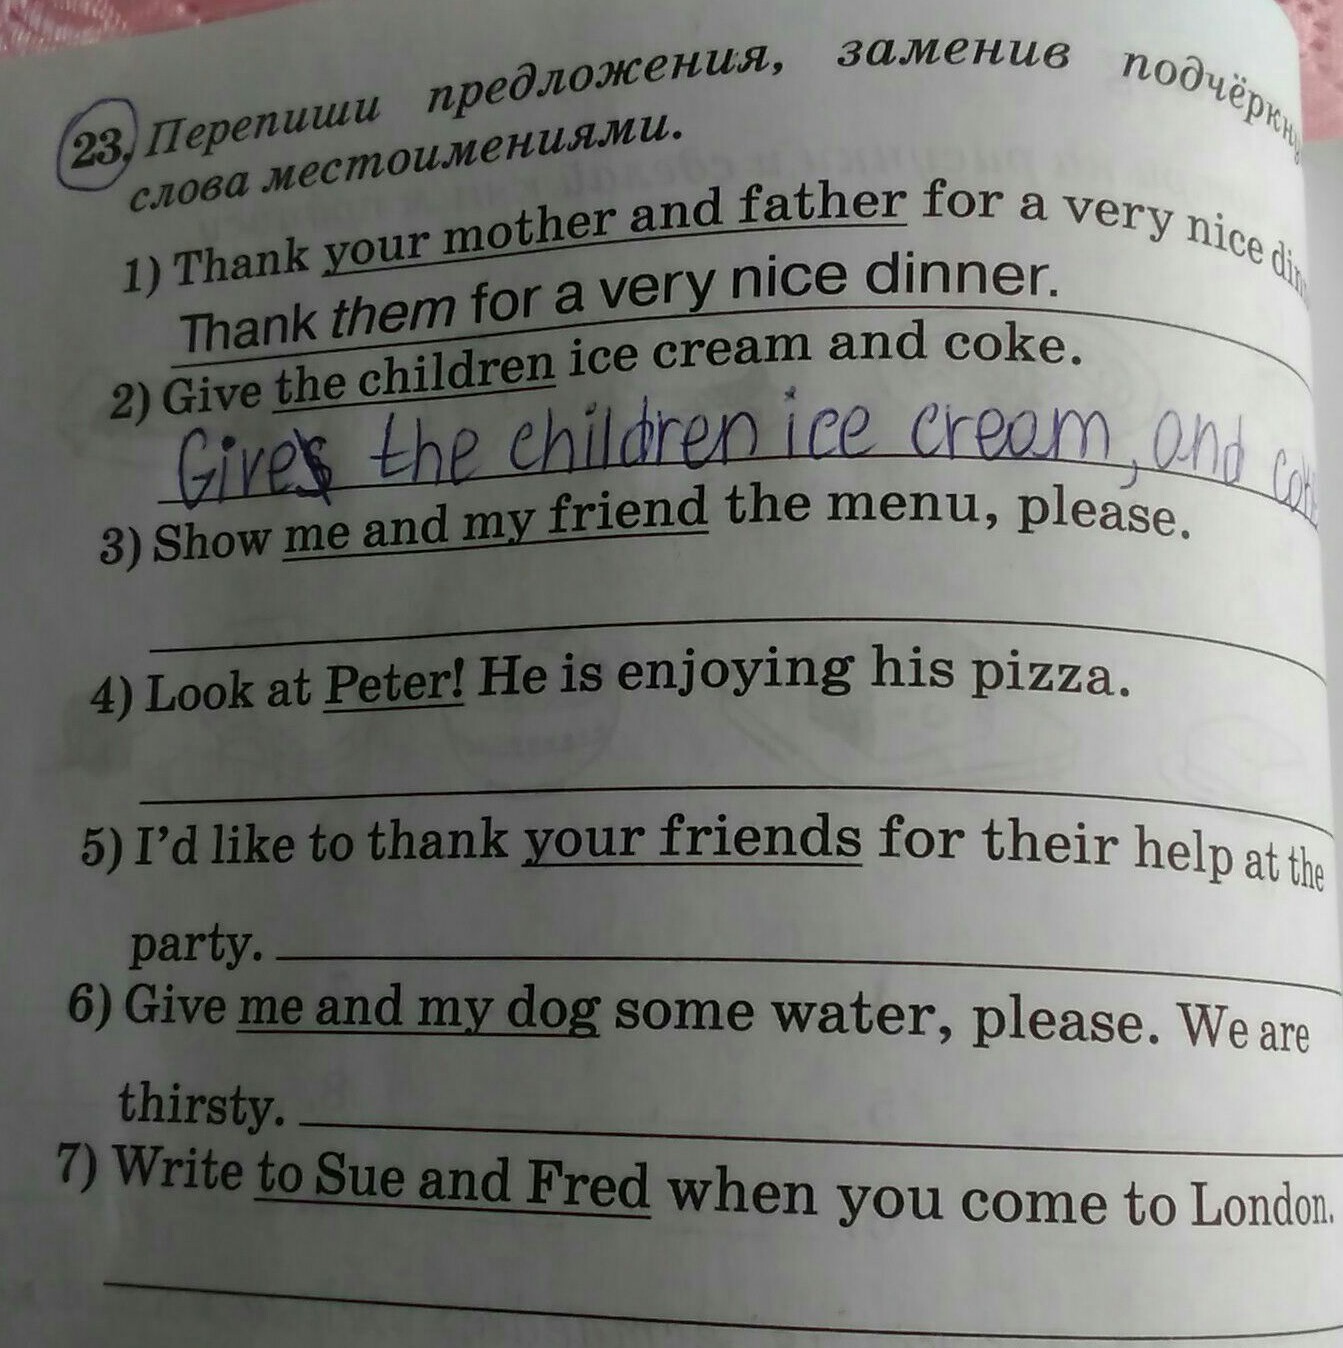 23, Перепиши предложения, заменив
слова местоимениями.
1) Thank your mother and father for a very nice
Thank them for a very nice dinner.
2) Give the children ice cream and coke.
Gives the children ice cream, and
3) Show me and my friend the menu, please.
4) Look at Peter! He is enjoying his pizza.
5) I'd like to thank your friends for their help at the
party.
6) Give me and my dog some water, please. We are
thirsty.
7) Write to Sue and Fred when you come to London.